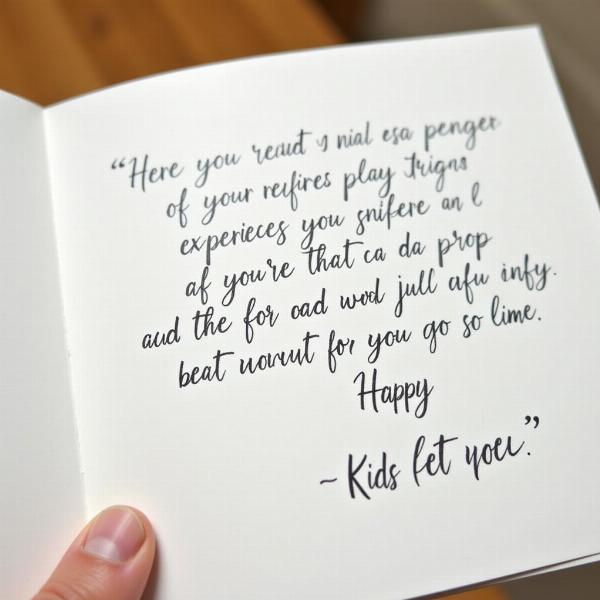 “Here you reaut nial esa penger
of your reifires play trigns
experieces you snifere an l
af you're that ca da prop
aud the for oad wod jull afu infy.
beat for you go so lime.
Happy
~ Kids let you.”